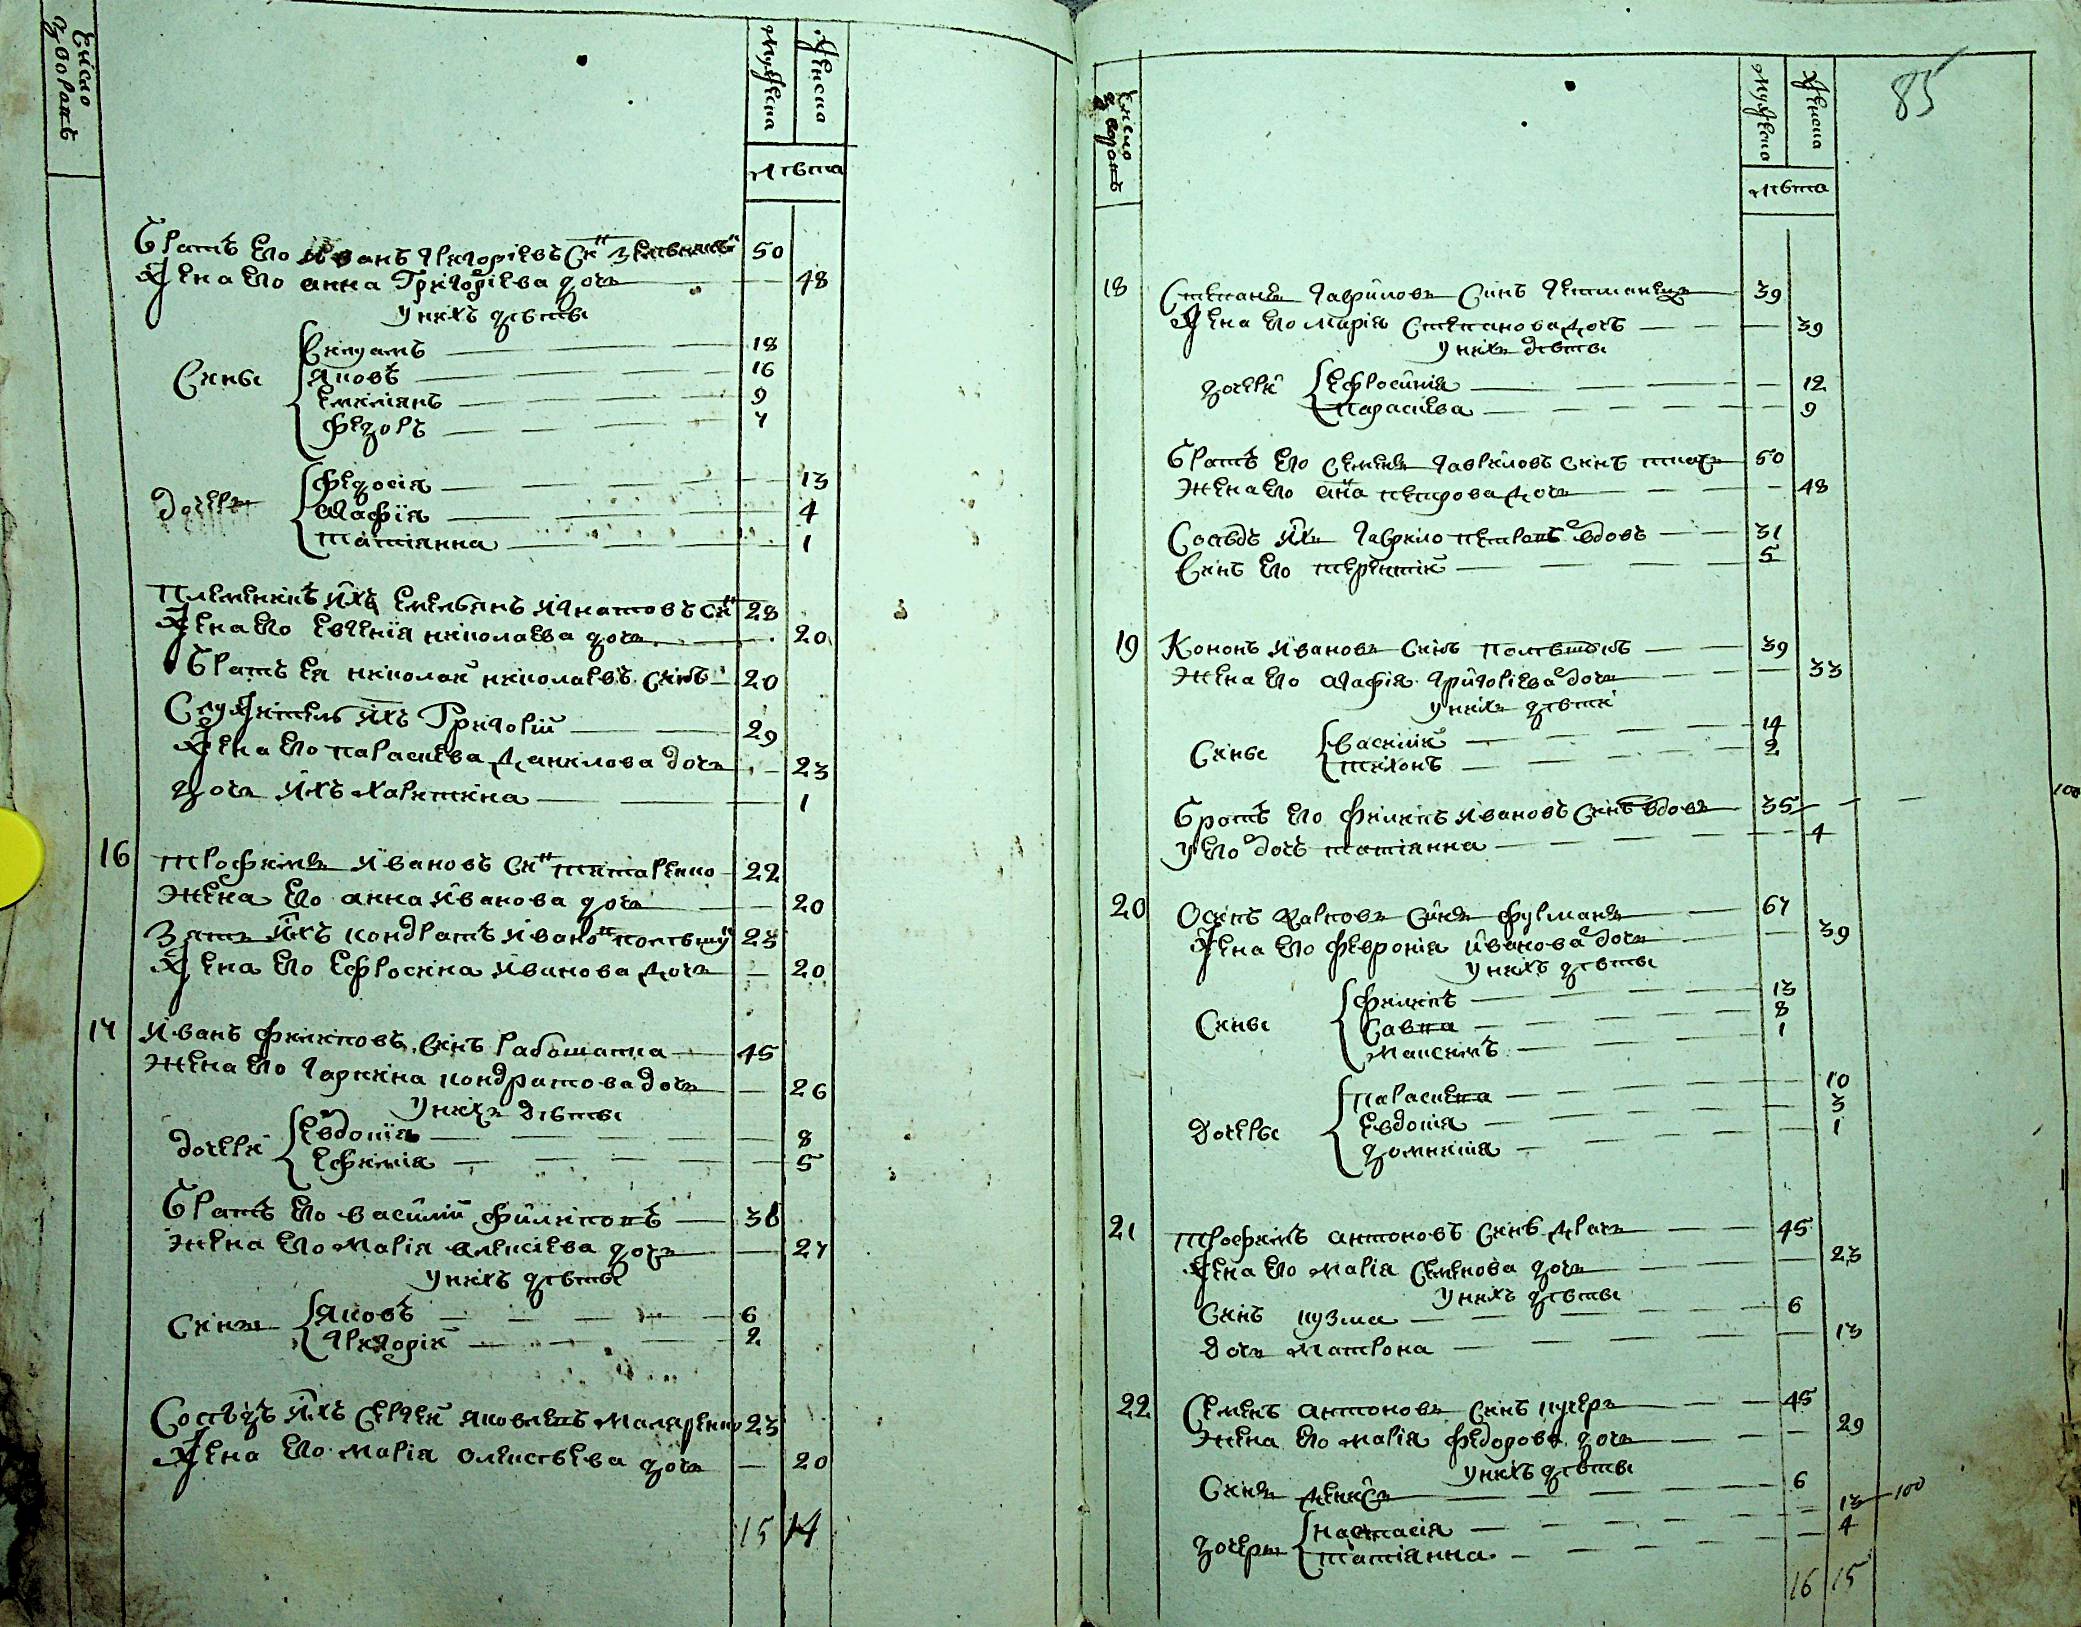 Число дворовъ
Мужеска
Женска
лѣта
Братъ его Иванъ Григоріевъ сн҃ъ 50
Жена его анна Григоріева дочь 48
у нихъ дѣти
Сини
Яковъ 16
Емиліянъ 9
Федоръ 7
18
дочери
Федосія 13
Агафія 4
татіянна 1
Племеникъ ихъ Емельянъ Игнатовъ сн҃ъ 28
Жена его Евгенія николаева дочь 20
Братъ ея николай николаевъ синъ 20
Служитель ихъ Григорій 29
Жена его параскева Данилова дочь 23
дочь ихъ харитина 1
16 трофимъ Ивановъ сн҃ъ титаренко 22
Жена его анна Иванова дочь 20
Зять ихъ кондратъ Ивановъ 23
Жена его Ефросина Иванова дочь 20
17 Иванъ Филиповъ синъ работатка 45
Жена его гарпина кондратова дочь 26
у нихъ дѣти
дочери
Евдокія 8
Ефимія 5
Братъ его василий филиповъ 36
Жена его Марія алексіева дочь 27
у нихъ дѣти
Сини
Яковъ 6
Григорій 2
Сосѣдъ ихъ Сергей яковлевъ Маляренко 23
Жена его марія олексѣева дочь 20
15 14
85
Число дворовъ
Мужеска
Женска
лѣта
18 Степанъ гавриловъ синъ гетманецъ 39
Жена его Марія Степанова дочь 39
у нихъ дѣти
дочери
Ефросинія 12
Параскева 9
Братъ его Семенъ гавриловъ синъ ткачъ 50
Жена его анна петрова дочь 48
Сосѣдъ ихъ гаврило петровъ вдовъ 31
Синъ его терентій 5
19 Кононъ Ивановъ синъ 39
Жена его агафія григоріева дочь 33
у нихъ дѣти
Сини
василій 14
тихонъ 2
Братъ его филипъ Ивановъ синъ вдовъ 35
у его дочь татіянна 4
100
20 Осипъ карповъ синъ фурманъ 67
Жена его феврония Иванова дочь 39
у нихъ дѣти
Сини
филипъ 13
Савка 8
Максимъ 1
Дочеры
параскева 10
Евдокія 3
домникія 1
21 трофимъ антоновъ синъ драчъ 45
Жена его марія Семенова дочь 23
у нихъ дѣти
Синъ кузма 6
дочь Матрона 13
22 Семенъ антоновъ синъ кучеръ 45
Жена его марія федорова дочь 29
у нихъ дѣти
Синъ Денисъ 6
дочеры
настасія 13 100
татіянна 4
16 15